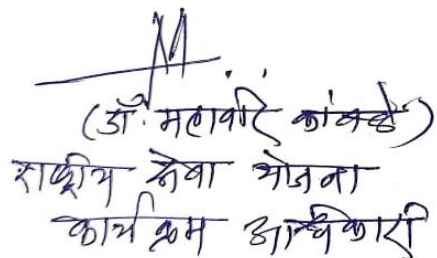 (डॉ. महावीर कांबळे)
राष्ट्रीय सेवा योजना
कार्यक्रम अधिकारी